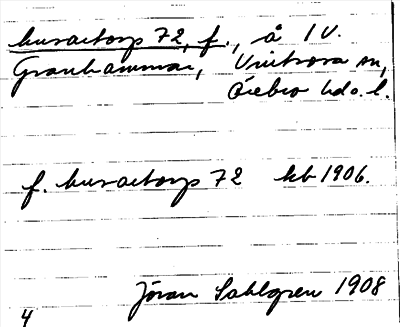 kusaetorp 72, f., å IV.
Granhammar, Vintrosa sn,
Örebro hd o. l.
f. kusaetorp 72 kb 1906.
Jöran Sahlgren 1908
4